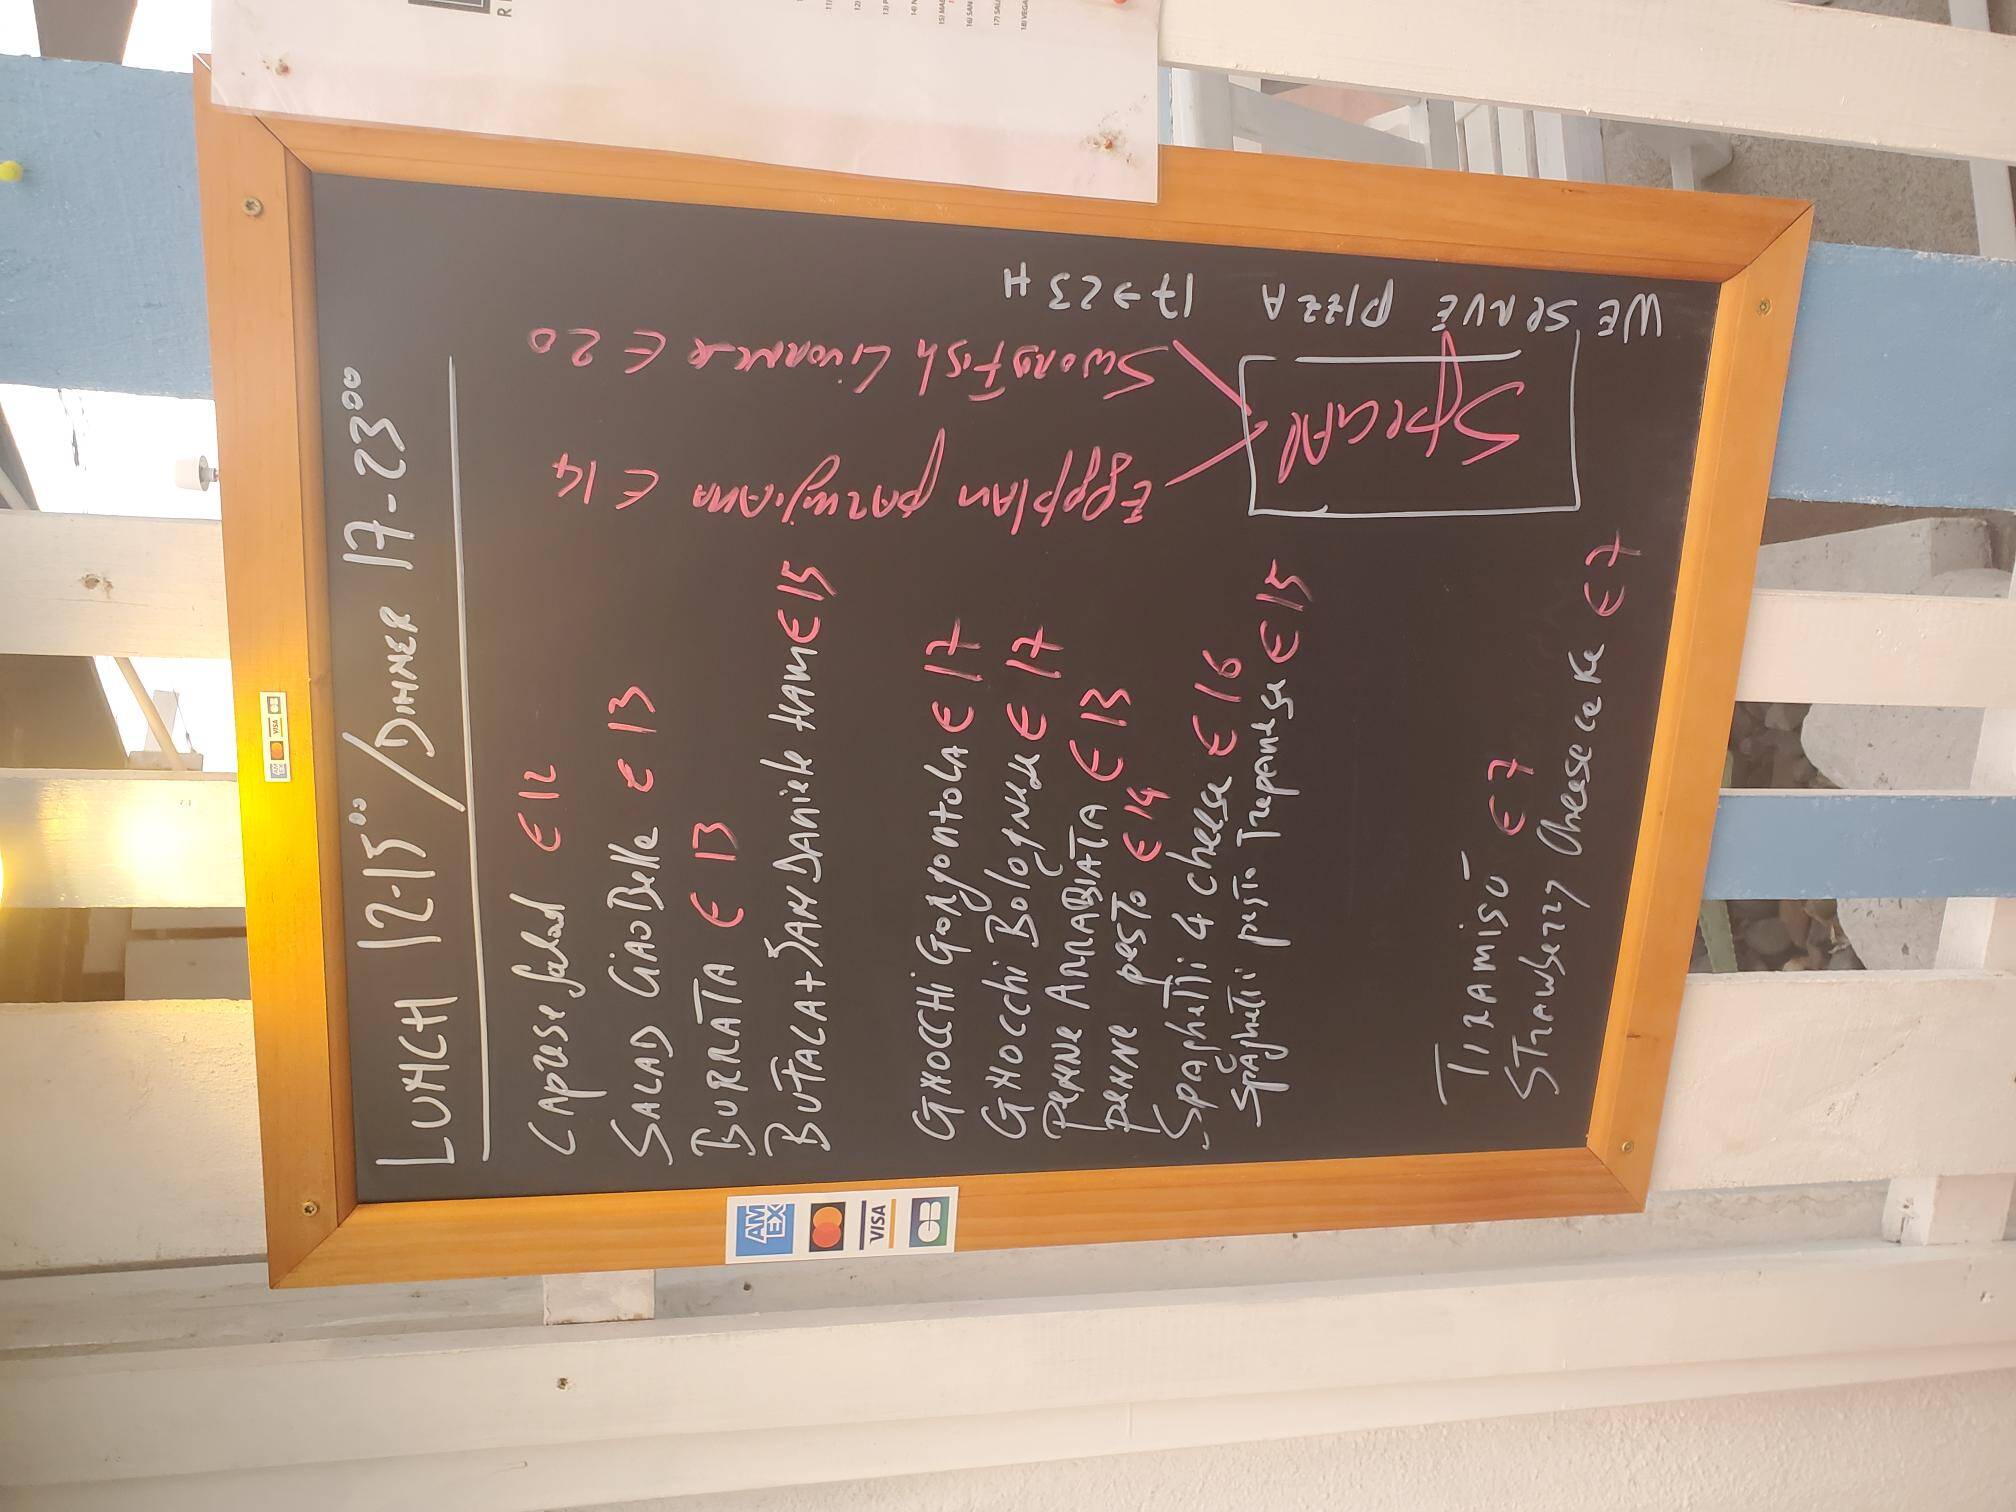 AM EX VISA CB
LUNCH 12-15°° / DINNER 17-23°°
CAprese Salad € 12
SALAD CiAO Bella € 13
BURRATA € 13
BUFALA + SAN DAniele HAM € 15
GNOCCHi GorgontolA € 17
GNOcchi Bolognese € 17
penne ARRABIATA € 13
penne pesto € 14
Spaghetti 4 cheese € 16
spaghetti pesto Trepanese € 15
TIRAMISÚ € 7
STrawberry Cheese cake € 7
Special
Eggplan parmijiana € 14
SwordFish Livornese € 20
WE SERVE PIZZA 17→23 H
AM
EX
VISA
CB
11)
12)
13) P
14) N
15) MAR
16) SAN
17) SAL
18) VEGA